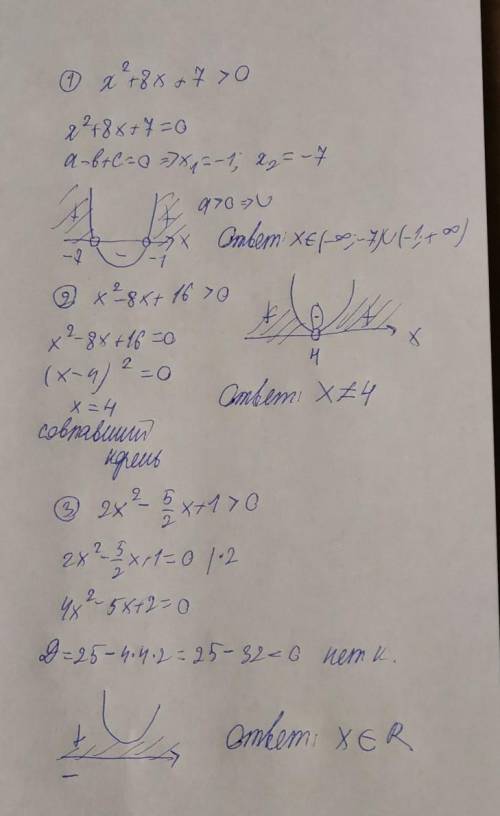 ① x²+8x+7>0
x²+8x+7=0
a-b+c=0 => x₁=-1; x₂=-7
a>0 => ∪
+ - + x
-7 -1
Ответ: x∈(-∞;-7)∪(-1;+∞)
② x²-8x+16>0
x²-8x+16=0
(x-4)²=0
x=4
совпавший
корень
+ - + x
4
Ответ: x≠4
③ 2x²-5/2x+1>0
2x²-5/2x+1=0 |·2
4x²-5x+2=0
D=25-4·4·2=25-32<0 нет к.
+
-
Ответ: x∈R